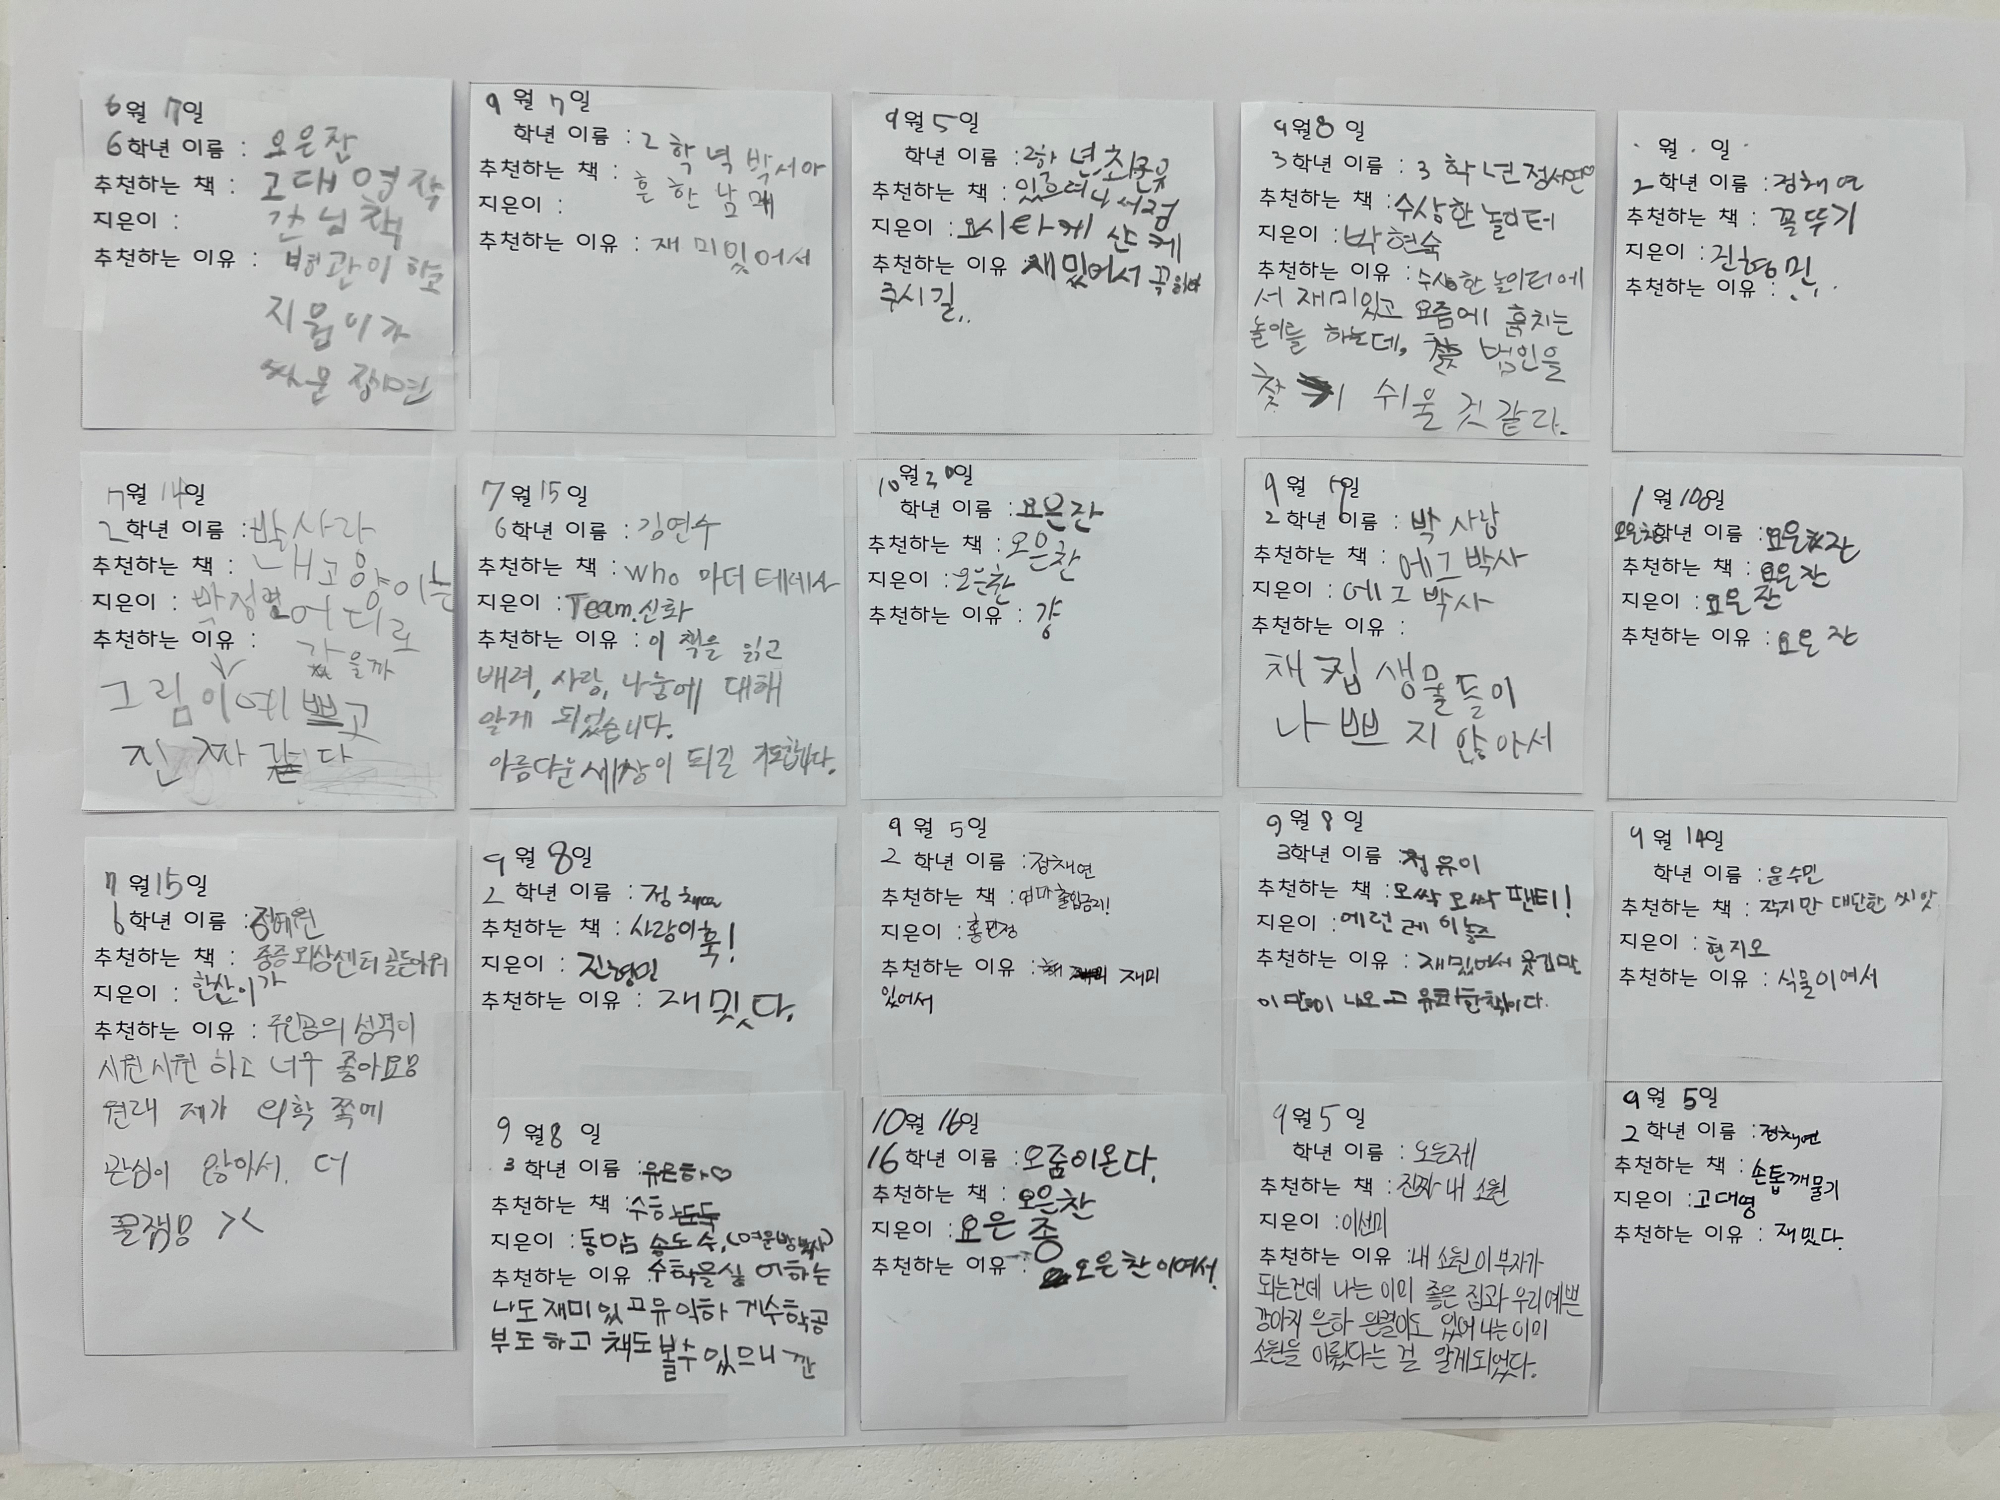 6월 7일
6학년 이름 : 오은찬
추천하는 책 : 고대영작
지은이 : 간님책
추천하는 이유 : 병관이 하고
지원이가
싸운 장면
9월 7일
학년 이름 : 2학년 박서아
추천하는 책 : 흔한남매
지은이 :
추천하는 이유 : 재미있어서
9월 5일
학년 이름 : 2학년
추천하는 책 : 있으려나 서점
지은이 : 요시타케 신스케
추천하는 이유 재밌어서 꼭
주시길..
9월 8일
3학년 이름 : 3학년 정서연♡
추천하는 책 : 수상한 놀이터
지은이 : 박현숙
추천하는 이유 : 수상한 놀이터에
서 재미있고 요즘에 훔치는
놀이를 하는데, 범인을
찾기 쉬울 것 같다.
월 일
2학년 이름 : 정채연
추천하는 책 : 꼴뚜기
지은이 : 진형민
추천하는 이유 :
7월 14일
2학년 이름 : 박사랑
추천하는 책 : 내 고양이는
지은이 : 어디로
추천하는 이유 : 갔을까
그림이 예쁘고
진짜 같다
7월 15일
6학년 이름 : 김연수
추천하는 책 : who 마더 테레사
지은이 : Team.신화
추천하는 이유 : 이 책을 읽고
배려, 사랑, 나눔에 대해
알게 되었습니다.
아름다운 세상이 되길 기도합니다.
10월 20일
학년 이름 : 오은찬
추천하는 책 : 오은찬
지은이 : 오은찬
추천하는 이유 : 걍
9월 일
2학년 이름 : 박사랑
추천하는 책 : 에그박사
지은이 : 에그박사
추천하는 이유 :
채집 생물들이
나쁘지 않아서
1월 일
학년 이름 : 오은찬
추천하는 책 : 오은찬
지은이 : 오은찬
추천하는 이유 : 오은찬
7월 15일
6학년 이름 : 정혜원
추천하는 책 : 중증외상센터 골든아워
지은이 : 한산이가
추천하는 이유 : 주인공의 성격이
시원시원 하고 너무 좋아요
원래 제가 의학 쪽에
관심이 많아서. 더
꿀잼 ><
9월 8일
2학년 이름 : 정채연
추천하는 책 : 사랑이 훅!
지은이 : 진형민
추천하는 이유 : 재밋다.
9월 5일
2학년 이름 : 정채연
추천하는 책 : 엄마 출입금지!
지은이 : 홍민정
추천하는 이유 : 재미
있어서
9월 8일
3학년 이름 : 정유이
추천하는 책 : 오싹오싹 팬티!
지은이 : 에런 레이놀즈
추천하는 이유 : 재밌어서 웃긴 만
이 나오고 유쾌한 책이다.
9월 14일
학년 이름 : 윤수민
추천하는 책 : 작지만 대단한 씨앗
지은이 : 현지오
추천하는 이유 : 식물이여서
9월 8일
3학년 이름 : 유은하♡
추천하는 책 : 수학도둑
지은이 : 동암 송도수,
추천하는 이유 : 수학을 싫어하는
나도 재미있고 유익하게 수학공
부도 하고 책도 볼수있으니깐
10월 16일
16학년 이름 : 오줌이온다.
추천하는 책 : 오은찬
지은이 : 요은종
추천하는 이유 : 오은찬이여서.
9월 5일
학년 이름 : 오은제
추천하는 책 : 진짜 내 소원
지은이 : 이선미
추천하는 이유 : 내 소원이 부자가
되는건데 나는 이미 좋은 집과 우리 예쁜
강아지 은하 은결이도 있어 나는 이미
소원을 이뤘다는 걸 알게되었다.
9월 5일
2학년 이름 : 정채연
추천하는 책 : 손톱 깨물기
지은이 : 고대영
추천하는 이유 : 재밌다.